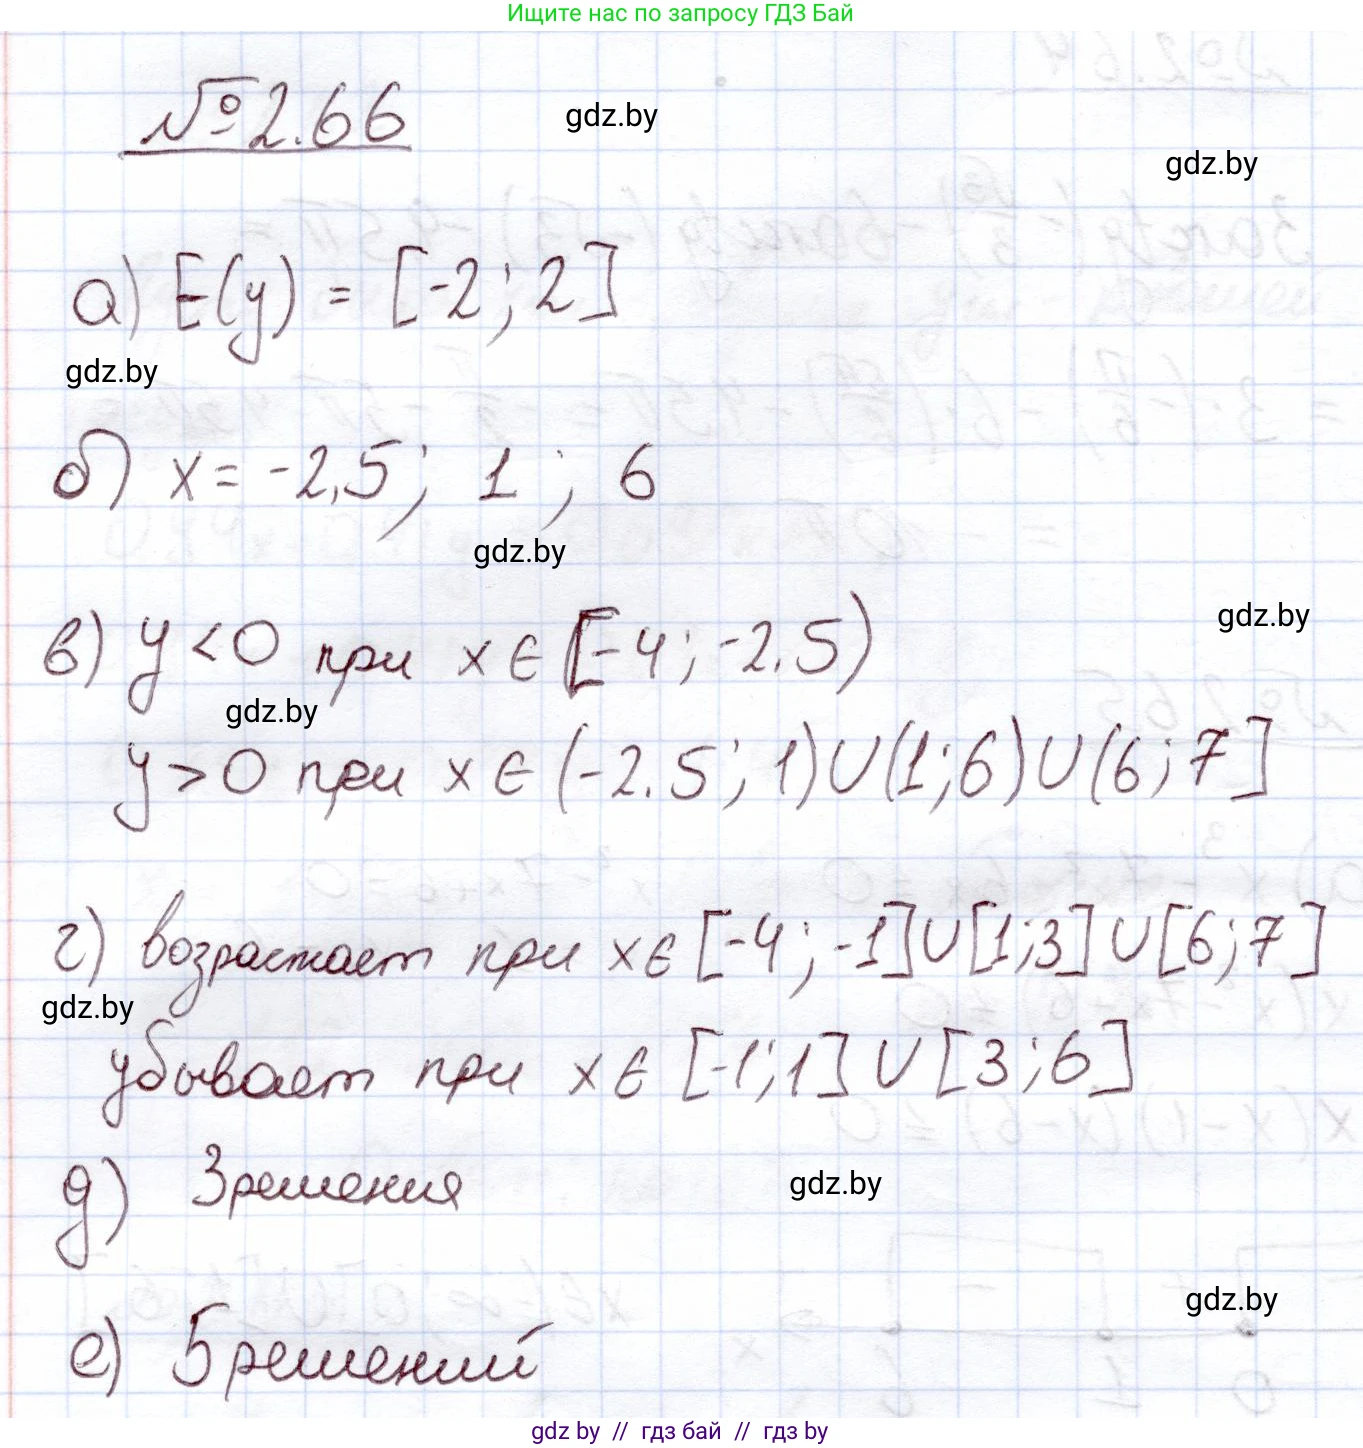 Ищите нас по запросу ГДЗ Бай
№2.66
gdz.by
gdz.by
а) E(y) = [-2; 2]
gdz.by
б) x = -2,5; 1; 6
gdz.by
gdz.by
в) y < 0 при x ∈ [-4; -2.5)
gdz.by
y > 0 при x ∈ (-2.5; 1) ∪ (1; 6) ∪ (6; 7]
г) возрастает при x ∈ [-4; -1] ∪ [1; 3] ∪ [6; 7]
gdz.by
убывает при x ∈ [-1; 1] ∪ [3; 6]
д) 3 решения
gdz.by
gdz.by
е) 5 решений
gdz by // гдз бай // гдз by